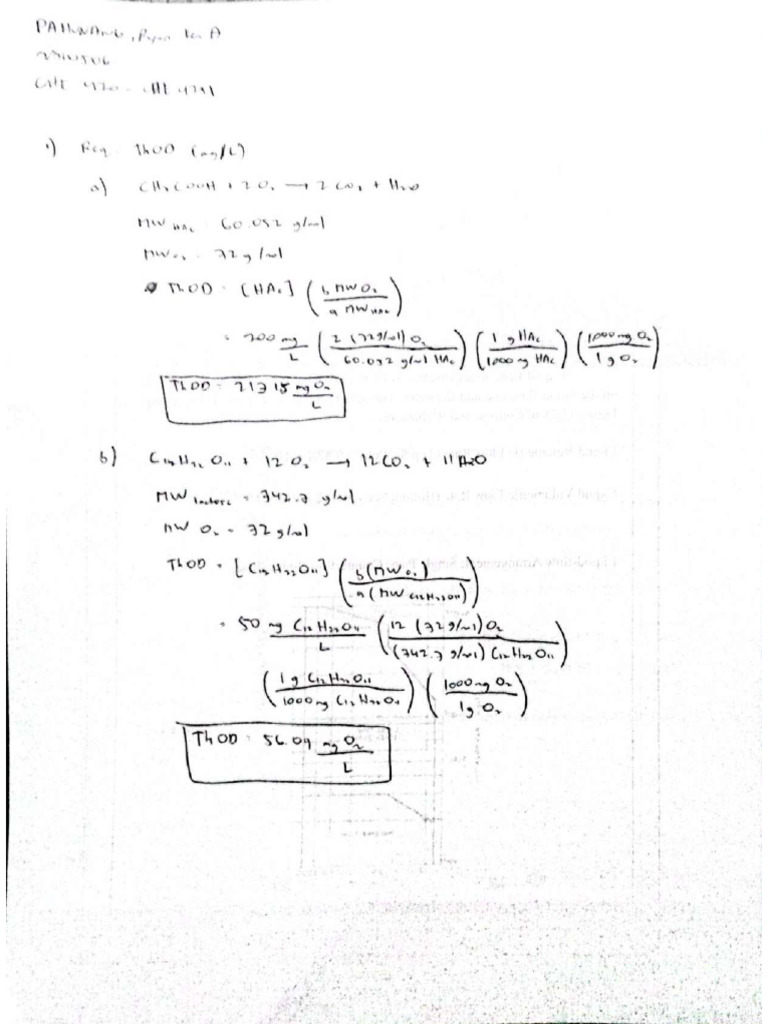 1) Req ThOD (mg/L)
a) CH₃COOH + 2O₂ → 2CO₂ + H₂O
MW HAc = 60.052 g/mol
MW O₂ = 32 g/mol
ThOD = [HAc] (b MW O₂ / a MW HAc)
= 200 mg/L (2 (32 g/mol) O₂ / 60.052 g/mol HAc) (1 g HAc / 1000 mg HAc) (1000 mg O₂ / 1 g O₂)
ThOD = 213.15 mg O₂/L
b) C₁₂H₂₂O₁₁ + 12O₂ → 12CO₂ + 11H₂O
MW lactose = 342.3 g/mol
MW O₂ = 32 g/mol
ThOD = [C₁₂H₂₂O₁₁] (b(MW O₂) / a(MW C₁₂H₂₂O₁₁))
= 50 mg C₁₂H₂₂O₁₁/L (12 (32 g/mol) O₂ / (342.3 g/mol) C₁₂H₂₂O₁₁)
(1 g C₁₂H₂₂O₁₁ / 1000 mg C₁₂H₂₂O₁₁) (1000 mg O₂ / 1 g O₂)
ThOD = 56.09 mg O₂/L